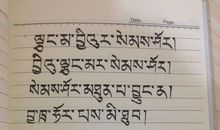 Date.        Page.
ལྕང་མ་བྱིའུར་སེམས་ཤོར།
བྱིའུ་ལྕང་མར་སེམས་ཤོར།
སེམས་ཤོར་མཐུན་པ་བྱུང་ན།
སྐྱ་ཧྲ་ཧོར་པས་མི་ཐུབ།